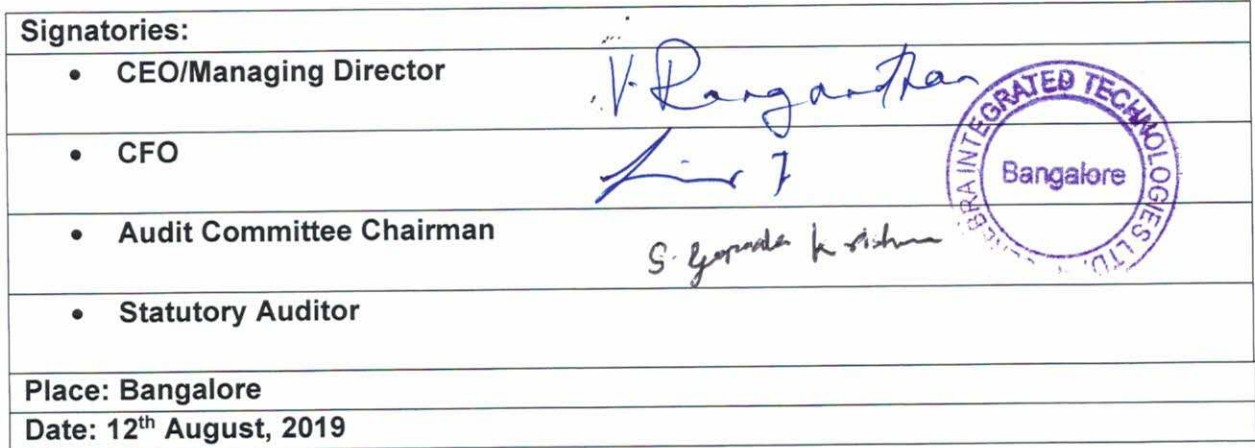 Signatories:
• CEO/Managing Director
V. Ranganathan
• CFO
• Audit Committee Chairman
S. Gopalakrishna
• Statutory Auditor
INTEGRATED TECHNOLOGIES LTD.
Bangalore
Place: Bangalore
Date: 12th August, 2019